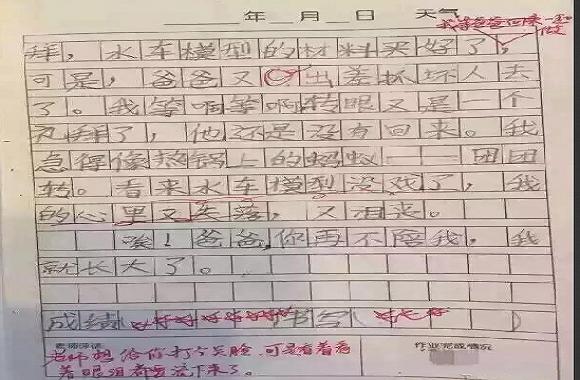 年 月 日 天气
我等爸爸回来一起做
拜，水车模型的材料买好了，
可是，爸爸又出差抓坏人去
了。我等啊等啊转眼又是一个
周期了，他还是没有回来。我
急得像热锅上的蚂蚁——团团
转。看来水车模型没戏了，我
的心里又失落，又相丧。
唉！爸爸，你再不陪我，我
就长大了。
成绩( 书写( )
老师评语
作业完成情况
老师想给你打个笑脸，可是看着看
着眼泪都要流下来了。